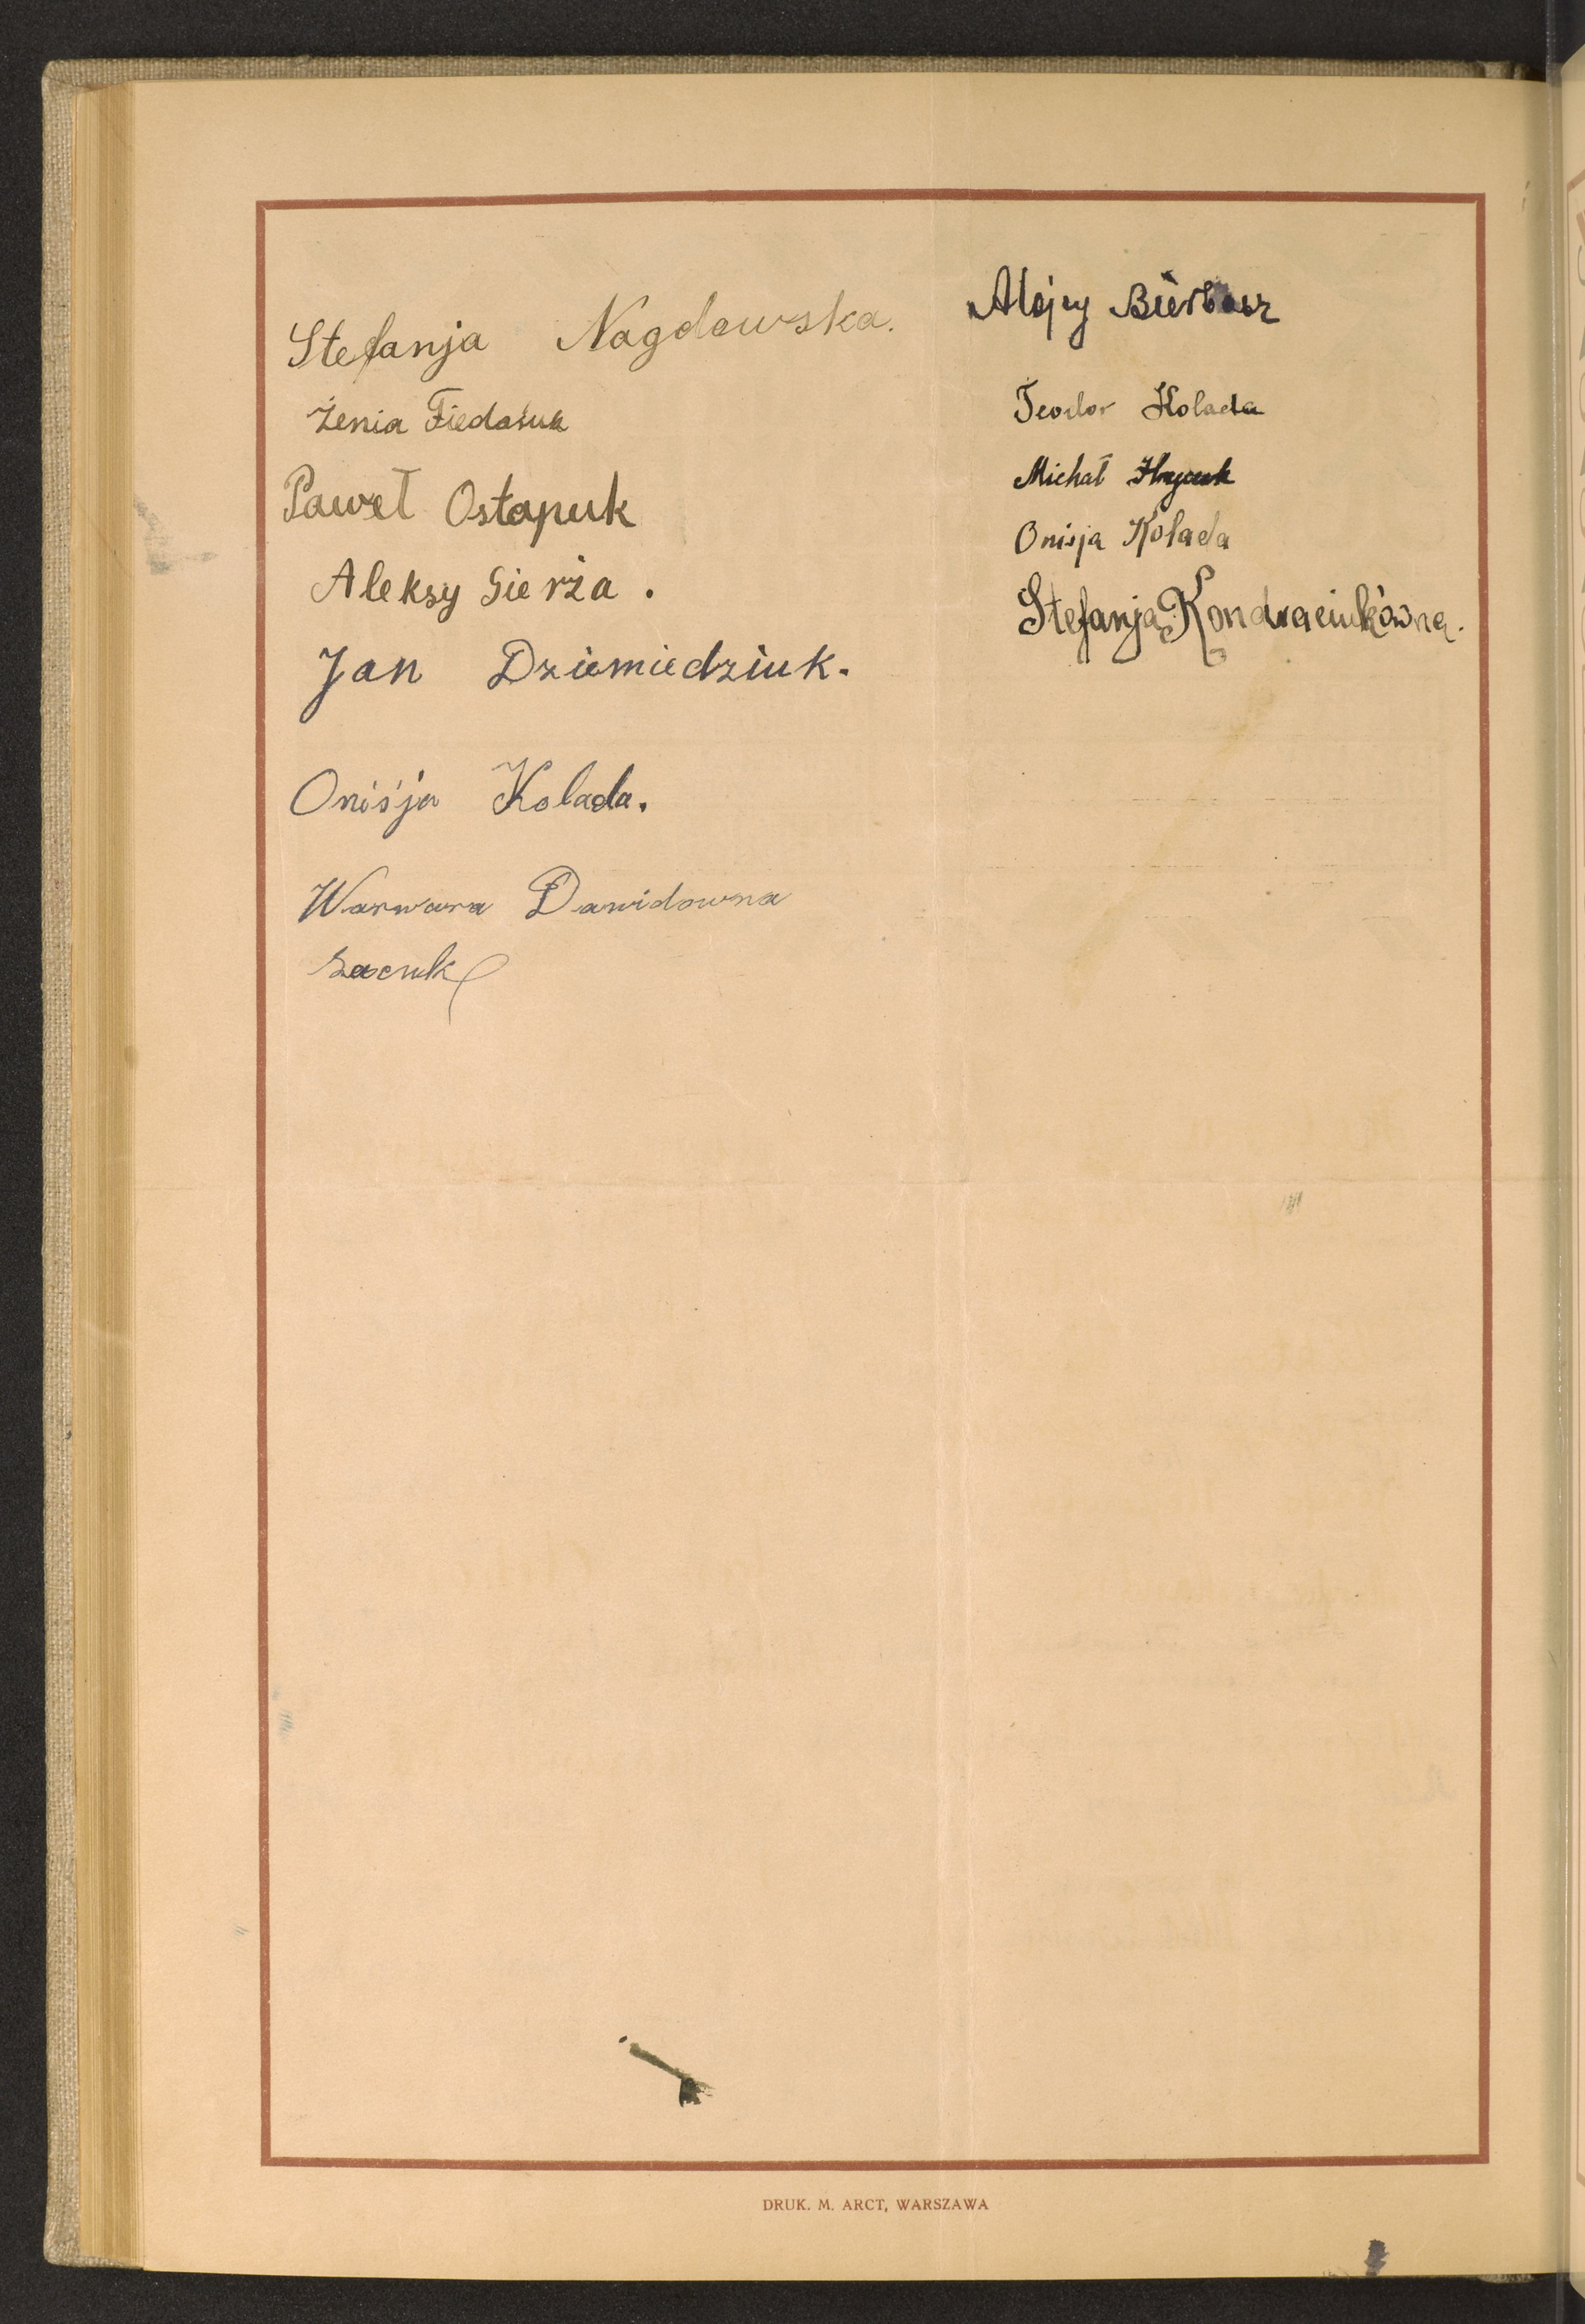 Stefanja Nagdowska.
Żenia Fiedosiuk
Paweł Ostapuk
Aleksy Gierża.
Jan Dziemiedziuk.
Oniśja Kolada.
Warwara Dawidowna
Alejzy
Teodor Kolada
Michał
Onisja Kolada
Stefanja Kondraciukówna.
DRUK. M. ARCT, WARSZAWA